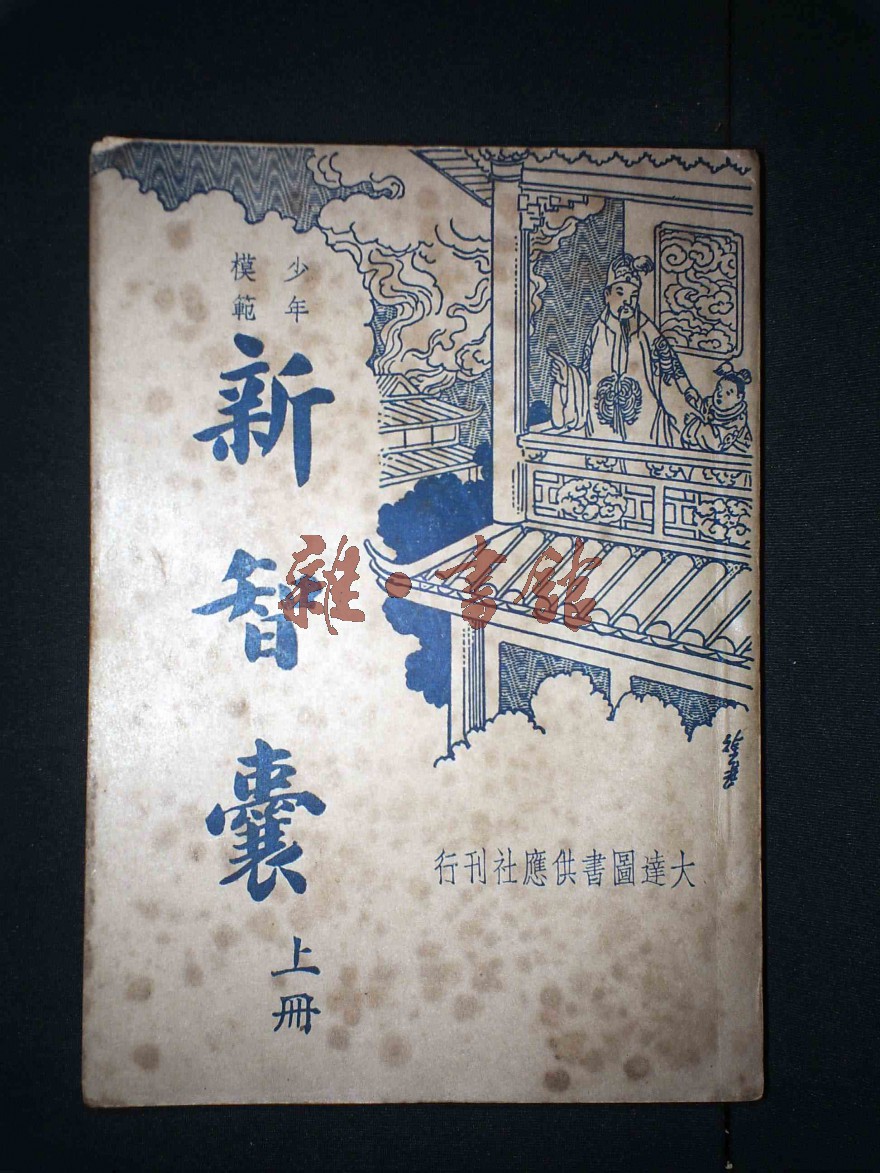 少年
模範
新智囊
上冊
大達圖書供應社刊行
雜·書館